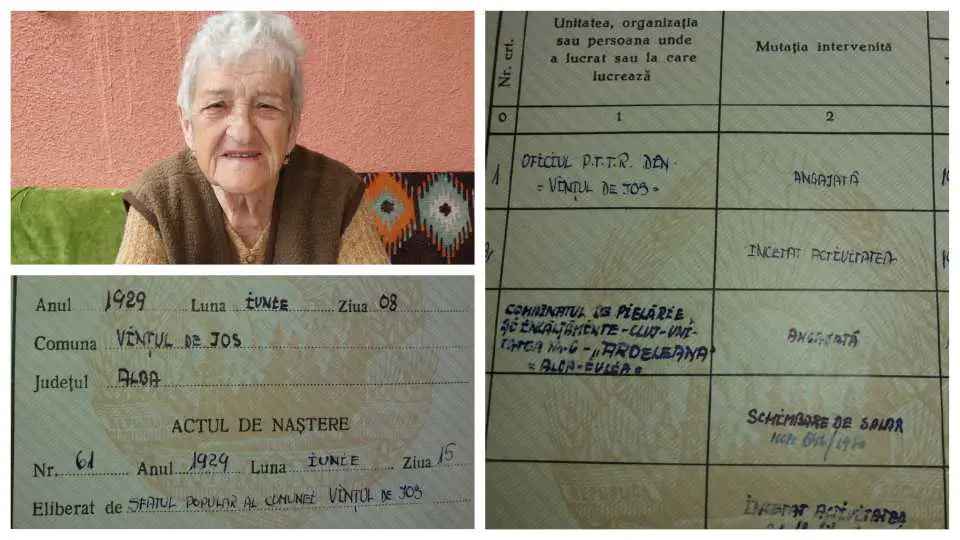 Anul 1929 Luna IUNIE Ziua 08
Comuna VINȚUL DE JOS
Județul ALBA
ACTUL DE NAȘTERE
Nr. 61 Anul 1929 Luna IUNIE Ziua 15
Eliberat de SFATUL POPULAR AL COMUNEI VINȚUL DE JOS
Nr. crt.
Unitatea, organizația
sau persoana unde
a lucrat sau la care
lucrează
Mutația intervenită
0 1 2
1 OFICIUL P.T.T.R. DEN.
= VINȚUL DE JOS = ANGAJATĂ
ÎNCETAT ACTIVITATEA
COMBINATUL DE PIELĂRIE
ȘI ÎNCĂLȚĂMINTE-CLUJ-UNI-
TATEA Nr-6-„ARDELEANA"
= ALBA-IULIA =
ANGAJATĂ
SCHIMBARE DE SALAR
ÎNCETAT ACTIVITATEA